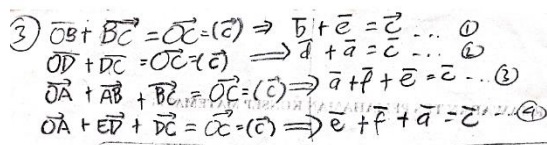 ③ $\overrightarrow{OB} + \overrightarrow{BC} = \overrightarrow{OC} = (\vec{c}) \Rightarrow \bar{b} + \bar{e} = \vec{c} \ldots$ ①
$\overrightarrow{OD} + \overrightarrow{DC} = \overrightarrow{OC} = (\vec{c}) \Rightarrow \bar{d} + \bar{a} = \bar{c} \ldots$ ②
$\overrightarrow{OA} + \overrightarrow{AB} + \overrightarrow{BC} = \overrightarrow{OC} = (\vec{c}) \Rightarrow \bar{a} + \bar{f} + \bar{e} = \bar{c} \ldots$ ③
$\overrightarrow{OA} + \overrightarrow{ED} + \overrightarrow{DC} = \overrightarrow{OC} = (\vec{c}) \Rightarrow \bar{e} + \bar{f} + \bar{a} = \bar{c} \ldots$ ④